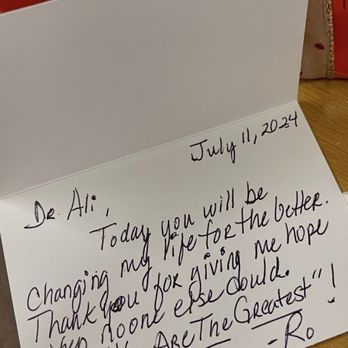 July 11, 2024
Dr. Ali,
Today you will be
changing my life for the better.
Thank you for giving me hope
when no one else could.
Are The Greatest"!
- Ro